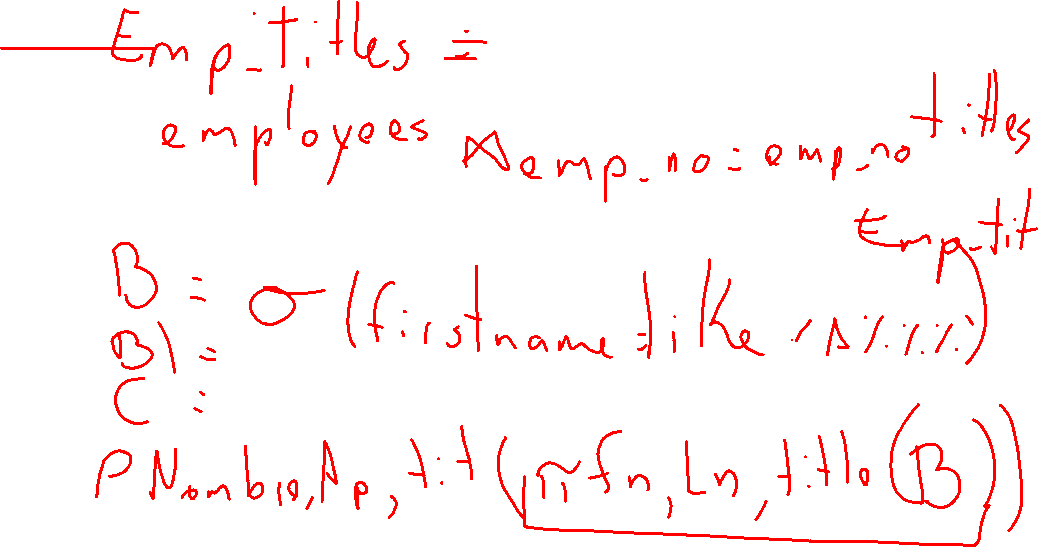 Emp_Titles =
employees ⋈ emp_no = emp_no titles
Emp_tit
B = σ (firstname = like 'A%%%)
B) =
C =
ρ Nombre, Ap, tit (π fn, Ln, title (B))